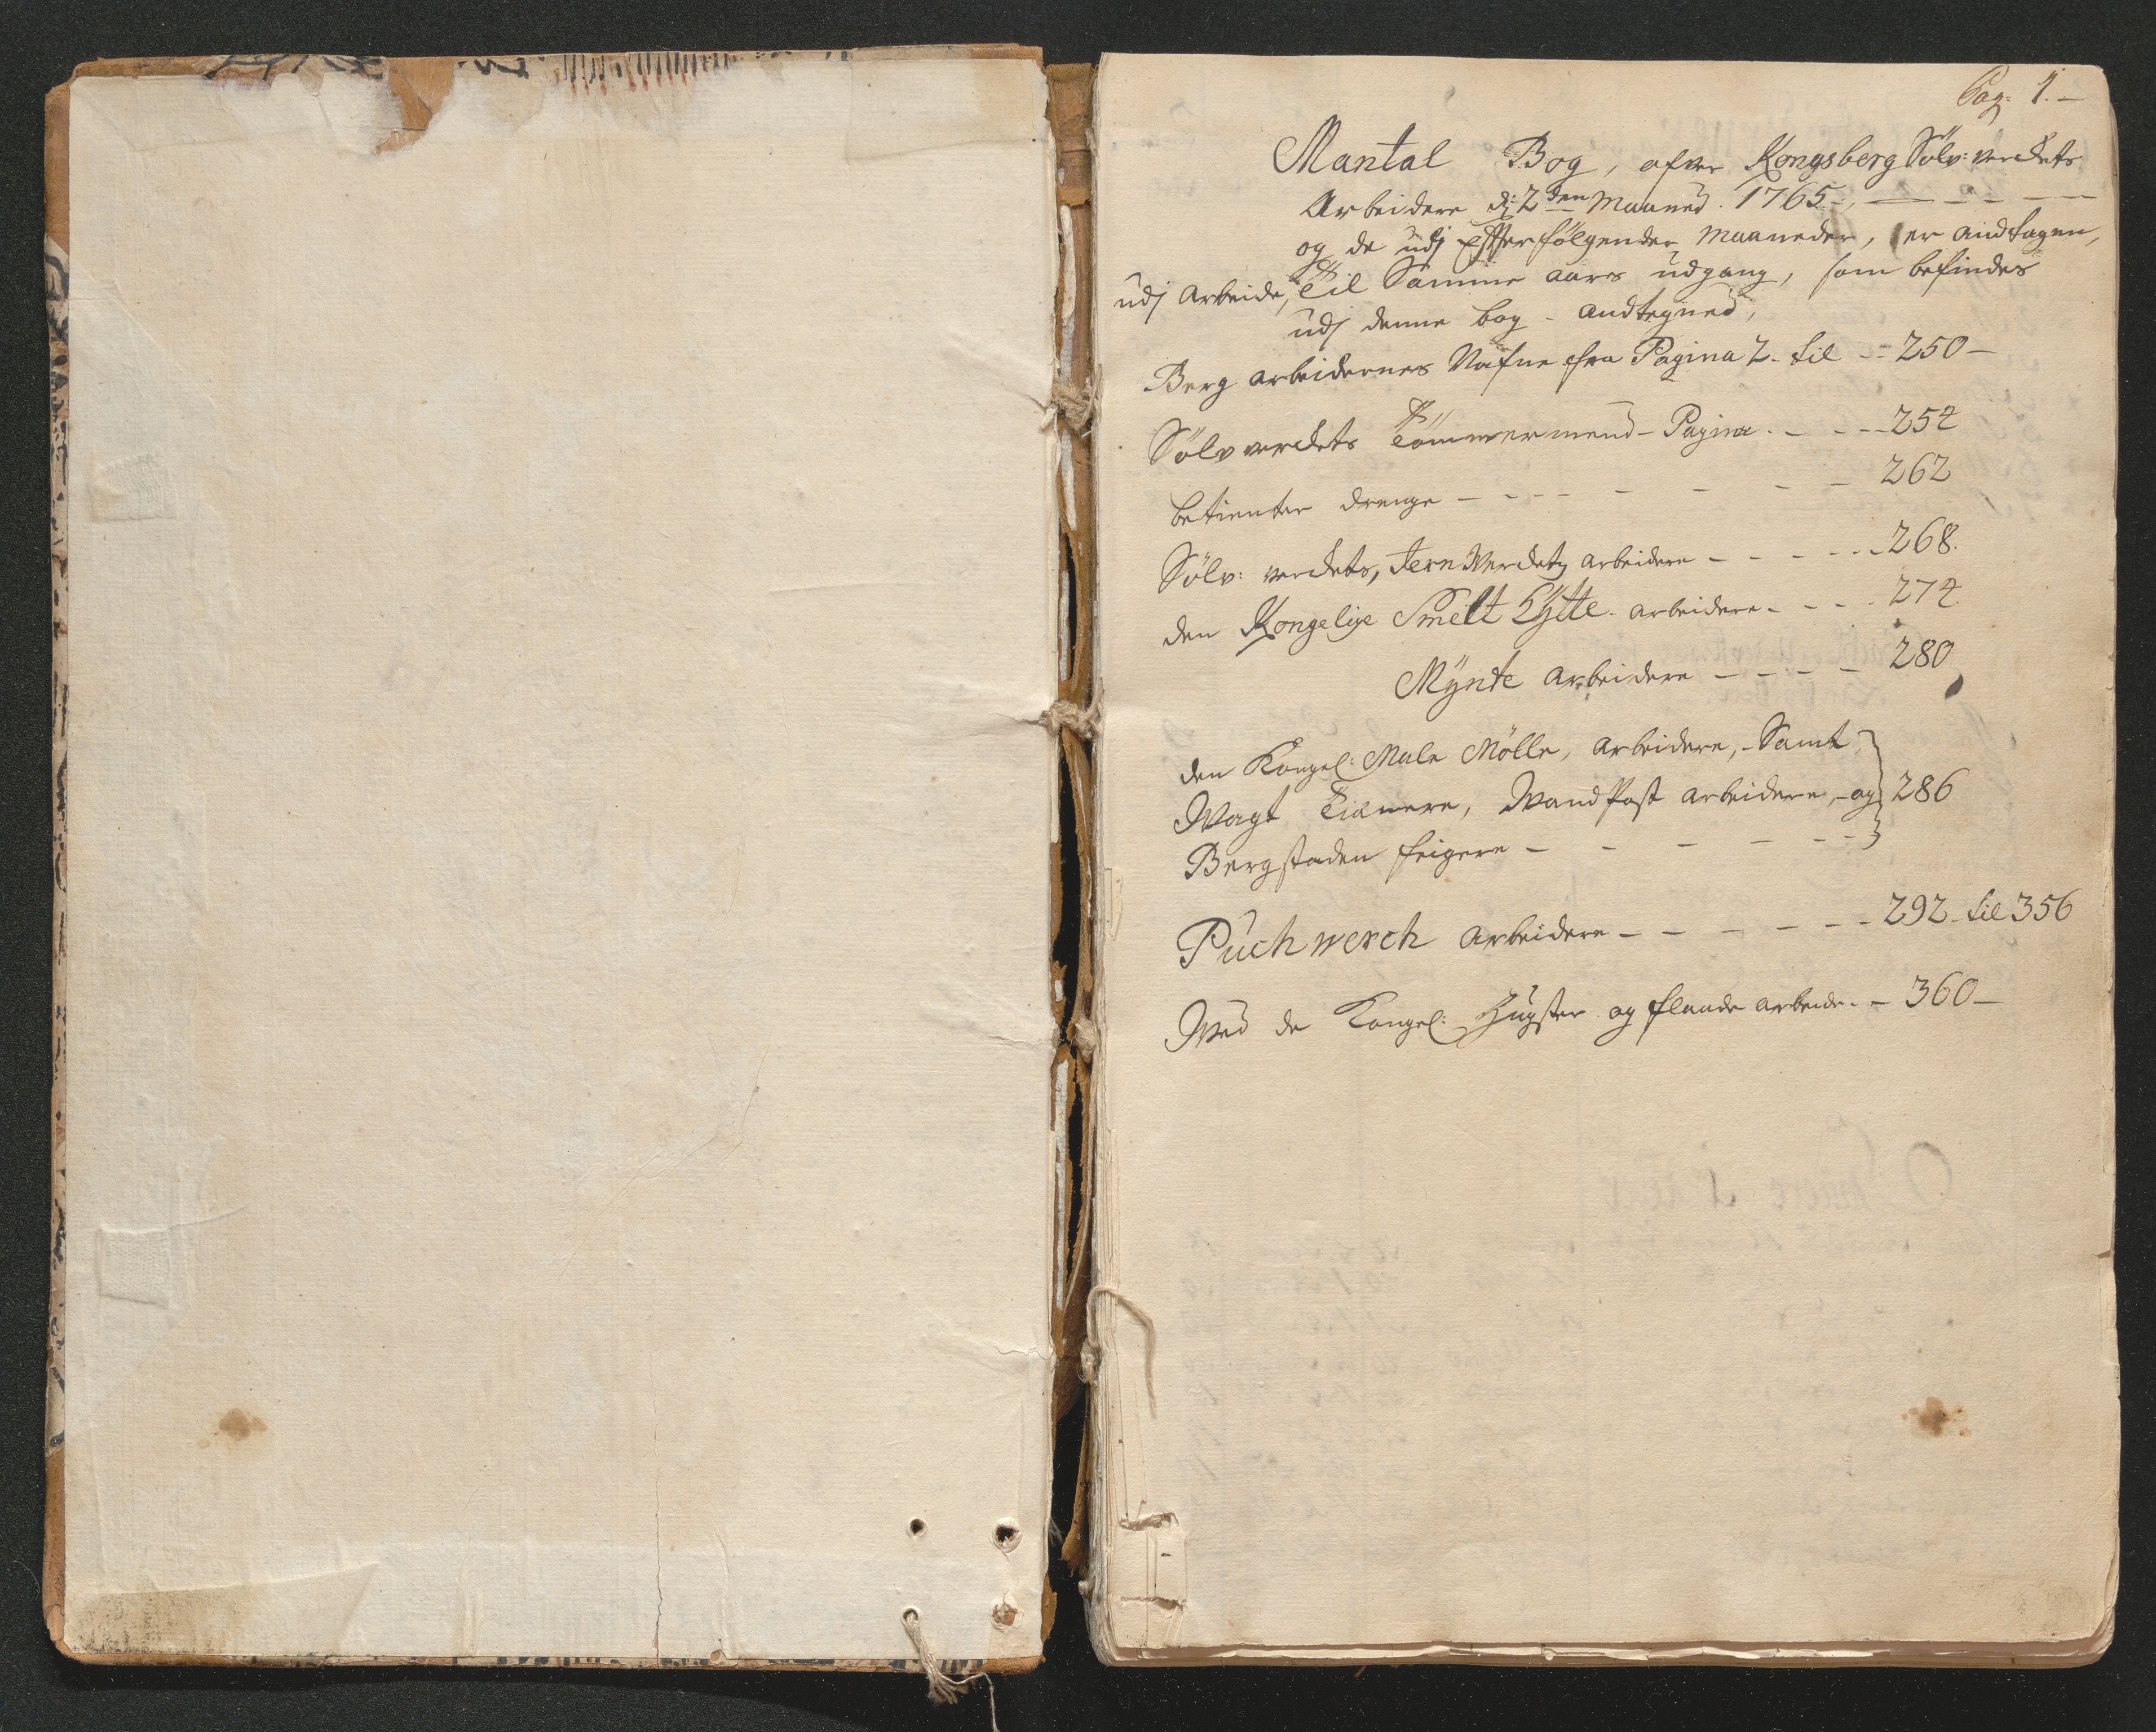 Pag: 1.
Mantal Bog, ofver Kongsberg Sölv: verckets
Arbeidere d: 2den Maaned. 1765
og de udj Efterfölgender Maaneder, er andtagen,
udj Arbeide, Til Samme aars udgang, som befindes
udj denne bog - andtegned,
Berg arbeidernes Nafne fra Pagina 2. til - 250 -
Sölv verckets Tömmermend - Pagina - - - 254
betienter drenge - - - - - - - 262
Sölv: verckets, Jern Werckets arbeidere - - - - - 268.
den Kongelige Smelt Hytte. arbeidere - - - 274.
Mÿnte arbeidere - - - - 280
den Kongel: Male Mölle, arbeidere, - Samt
Wagt , Wand Post arbeidere, - og 286
Bergstaden feigere - - - - - -
Puchwerch arbeidere - - - - - - 292 - til 356
Wed de Kongel: Hugster og flaade arbeide. - 360 -